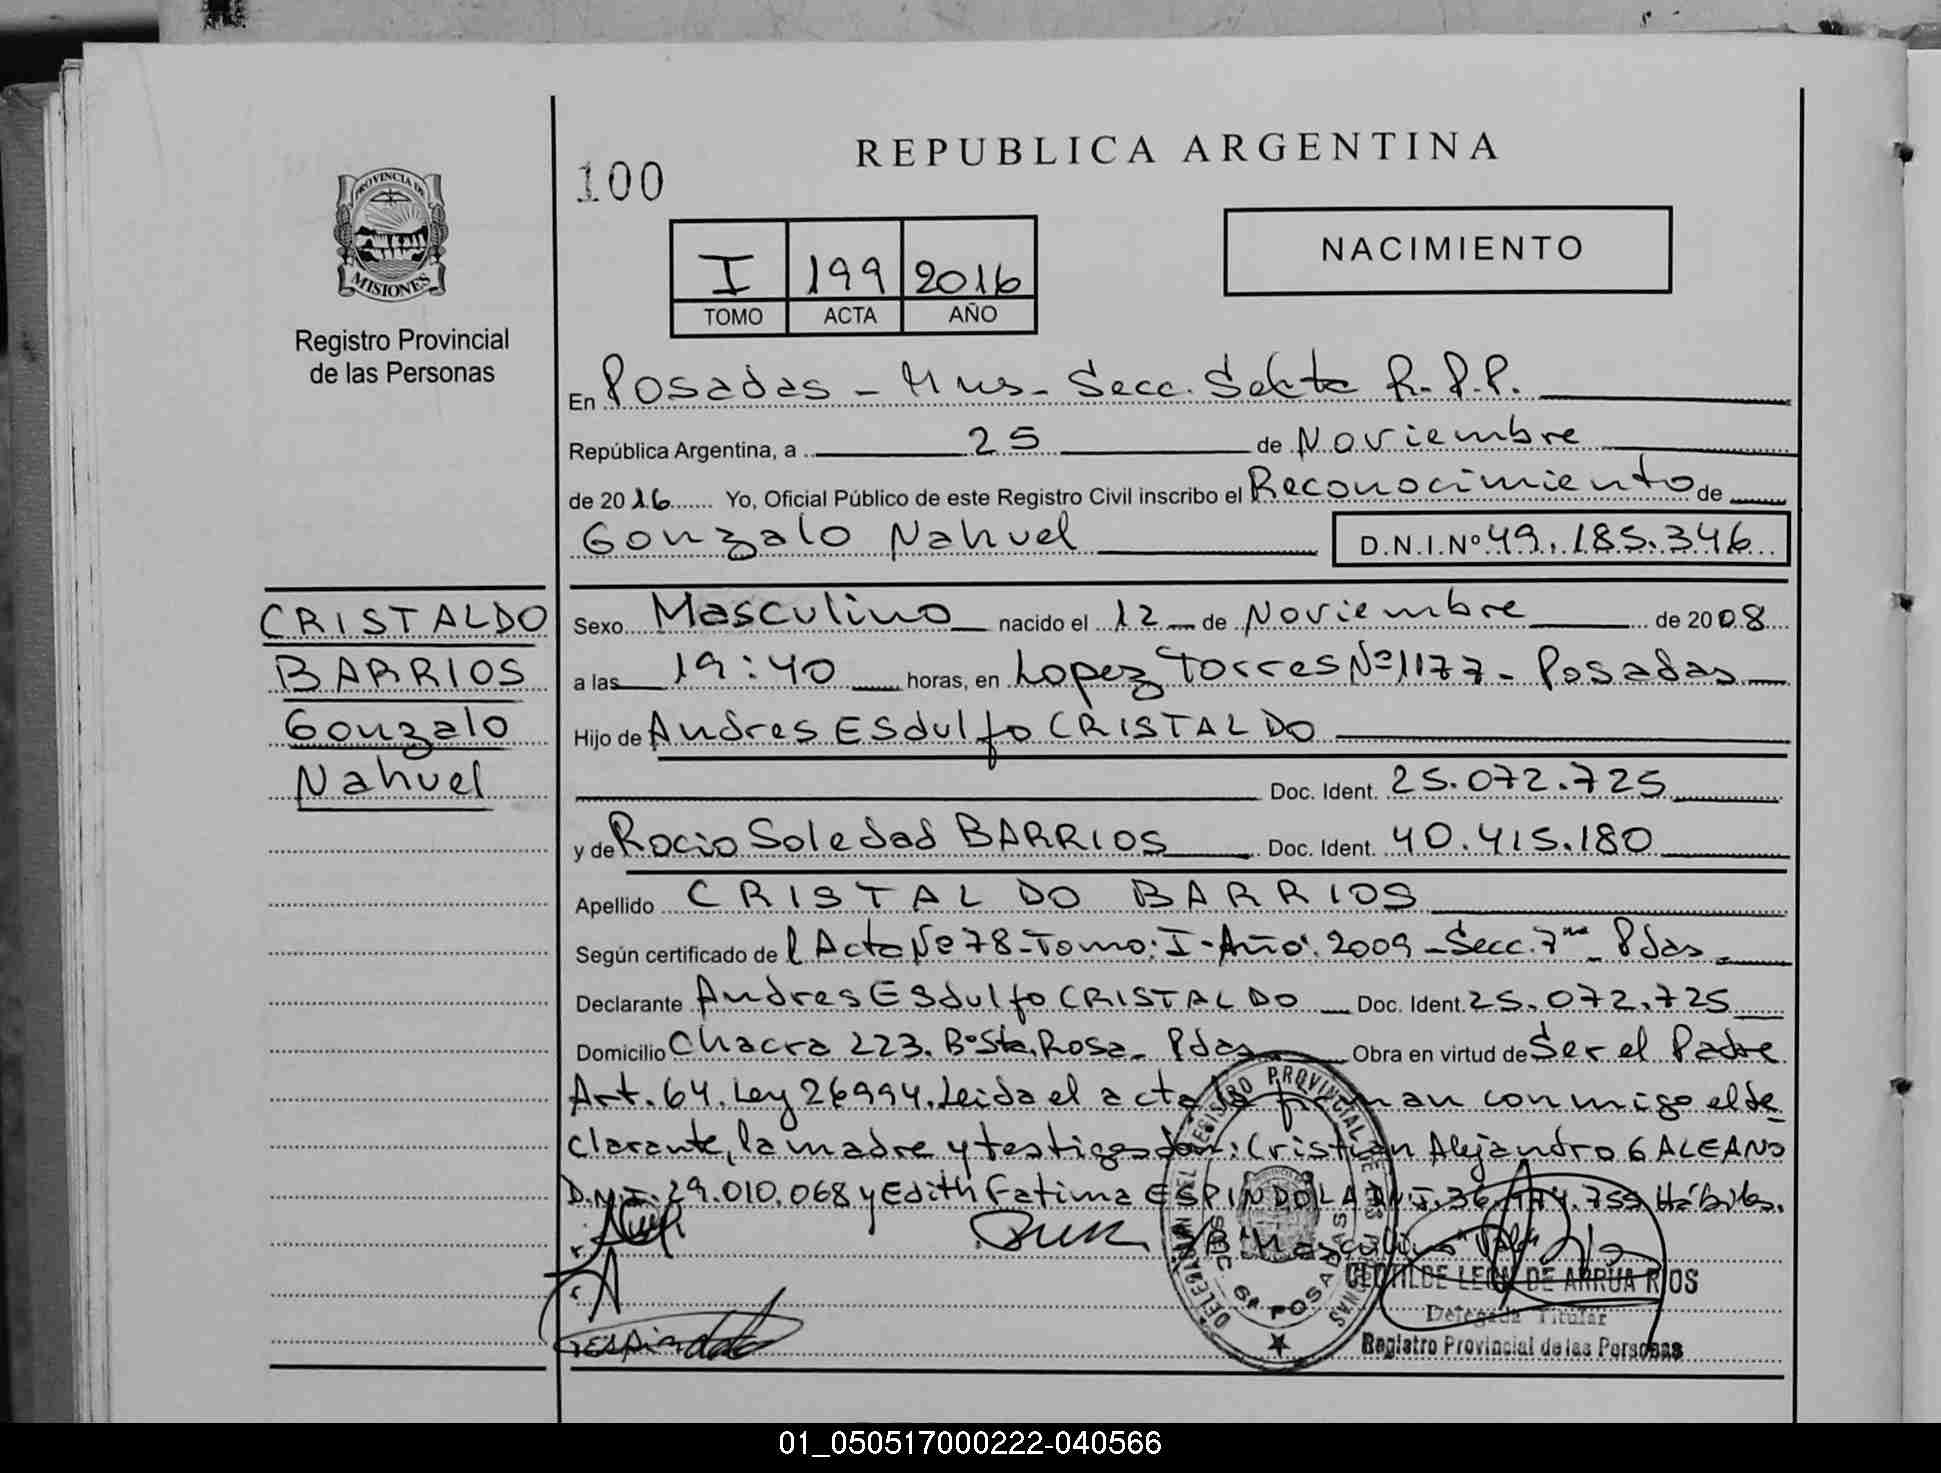 REPUBLICA ARGENTINA
100
PROVINCIA DE
MISIONES
Registro Provincial
de las Personas
I 199 2016
TOMO ACTA AÑO
NACIMIENTO
En Posadas - Mns - Secc. Sexta R.P.P.
República Argentina, a 25 de Noviembre
de 2016 Yo, Oficial Público de este Registro Civil inscribo el Reconocimiento de
Gonzalo Nahuel D.N.I.Nº 49.185.346
CRISTALDO
BARRIOS
Gonzalo
Nahuel
Sexo Masculino nacido el 12 de Noviembre de 2008
a las 19:40 horas, en Lopez Torres Nº 1177 - Posadas
Hijo de Andres ESdulfo CRISTALDO
Doc. Ident. 25.072.725
y de Rocio Soledad BARRIOS Doc. Ident. 40.415.180
Apellido CRISTALDO BARRIOS
Según certificado de l Acta Nº 78 - Tomo: I - Año: 2009 - Secc. 7ma - Pdas
Declarante Andres ESdulfo CRISTALDO Doc. Ident. 25.072.725
Domicilio Chacra 223. Bº Sta. Rosa - Pdas Obra en virtud de Ser el Padre
Art. 64. Ley 26994. Leida el acta la firman conmigo el de
clarante, la madre y testigos don: Cristian Alejandro GALEANO
D.N.I. 29.010.068 y Edith Fatima ESPINDOLA DNI. 755 Hábiles.
S/B "Masculino" Vale
DELEGACION DEL REGISTRO PROVINCIAL DE LAS PERSONAS
SECC 6ª POSADAS
CLOTILDE LEON DE ARRUA RIOS
Delegada Titular
Registro Provincial de las Personas
01_050517000222-040566